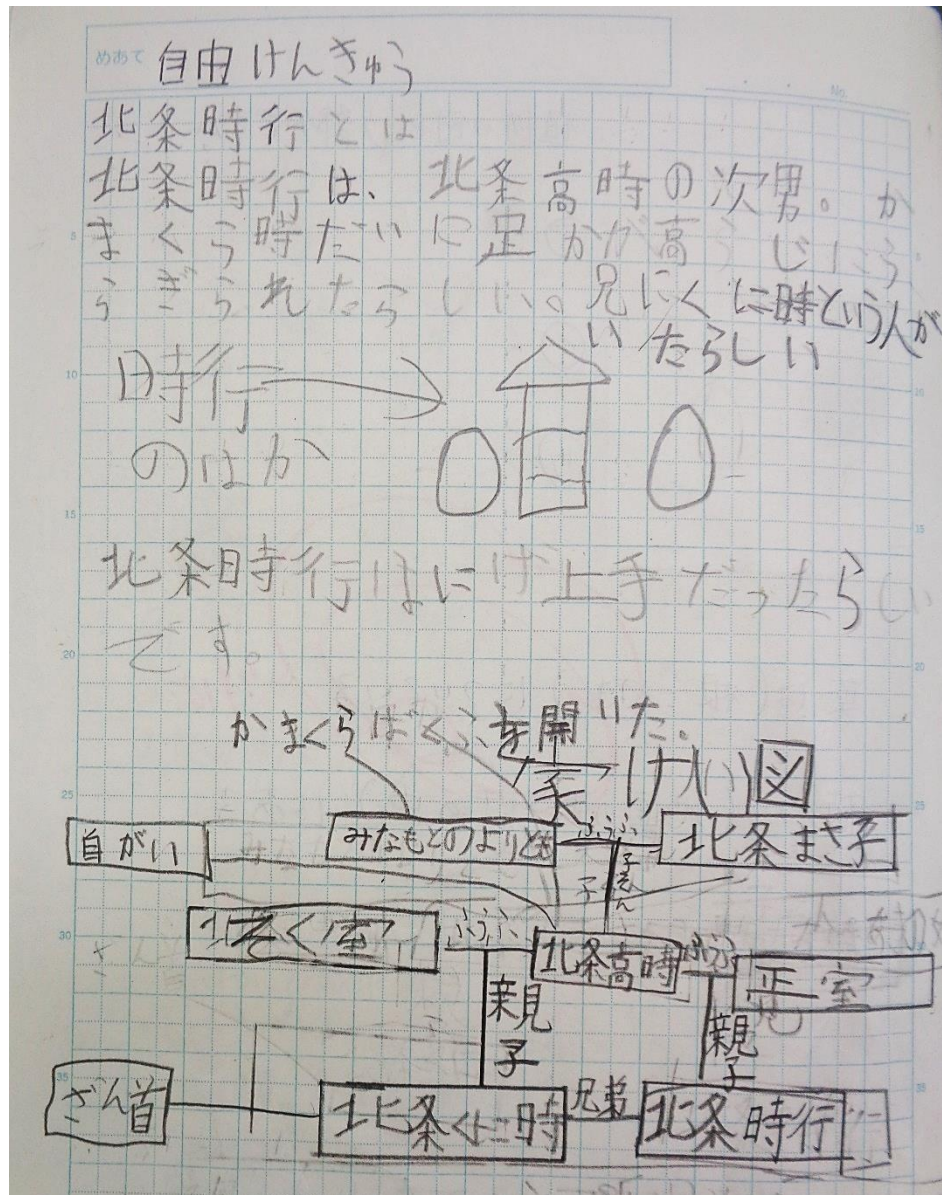 めあて 自由けんきゅう
No.
北条時行とは
北条時行は、北条高時の次男。か
まくら時だいに足かが高うじにう
らぎられたらしい。兄にくに時という人が
いたらしい
時行
のはか
北条時行はにげ上手だったらしい
です。
かまくらばくふを開いた。
家けい図
自がい
みなもとのよりとも
ふうふ
北条まさ子
そく室
ふうふ
北条高時
ふうふ
正室
親子
親子
ざん首
北条くに時
兄弟
北条時行
5
10
15
20
25
30
35